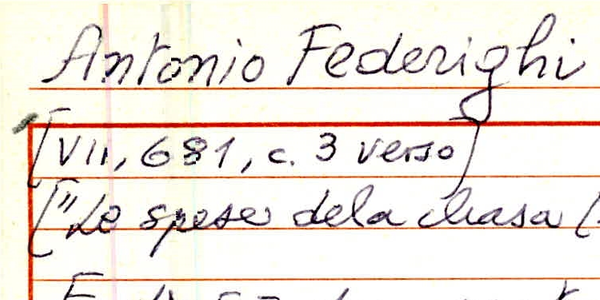 Antonio Federighi
[VII, 681, c. 3 verso]
["Le spese dela chasa (